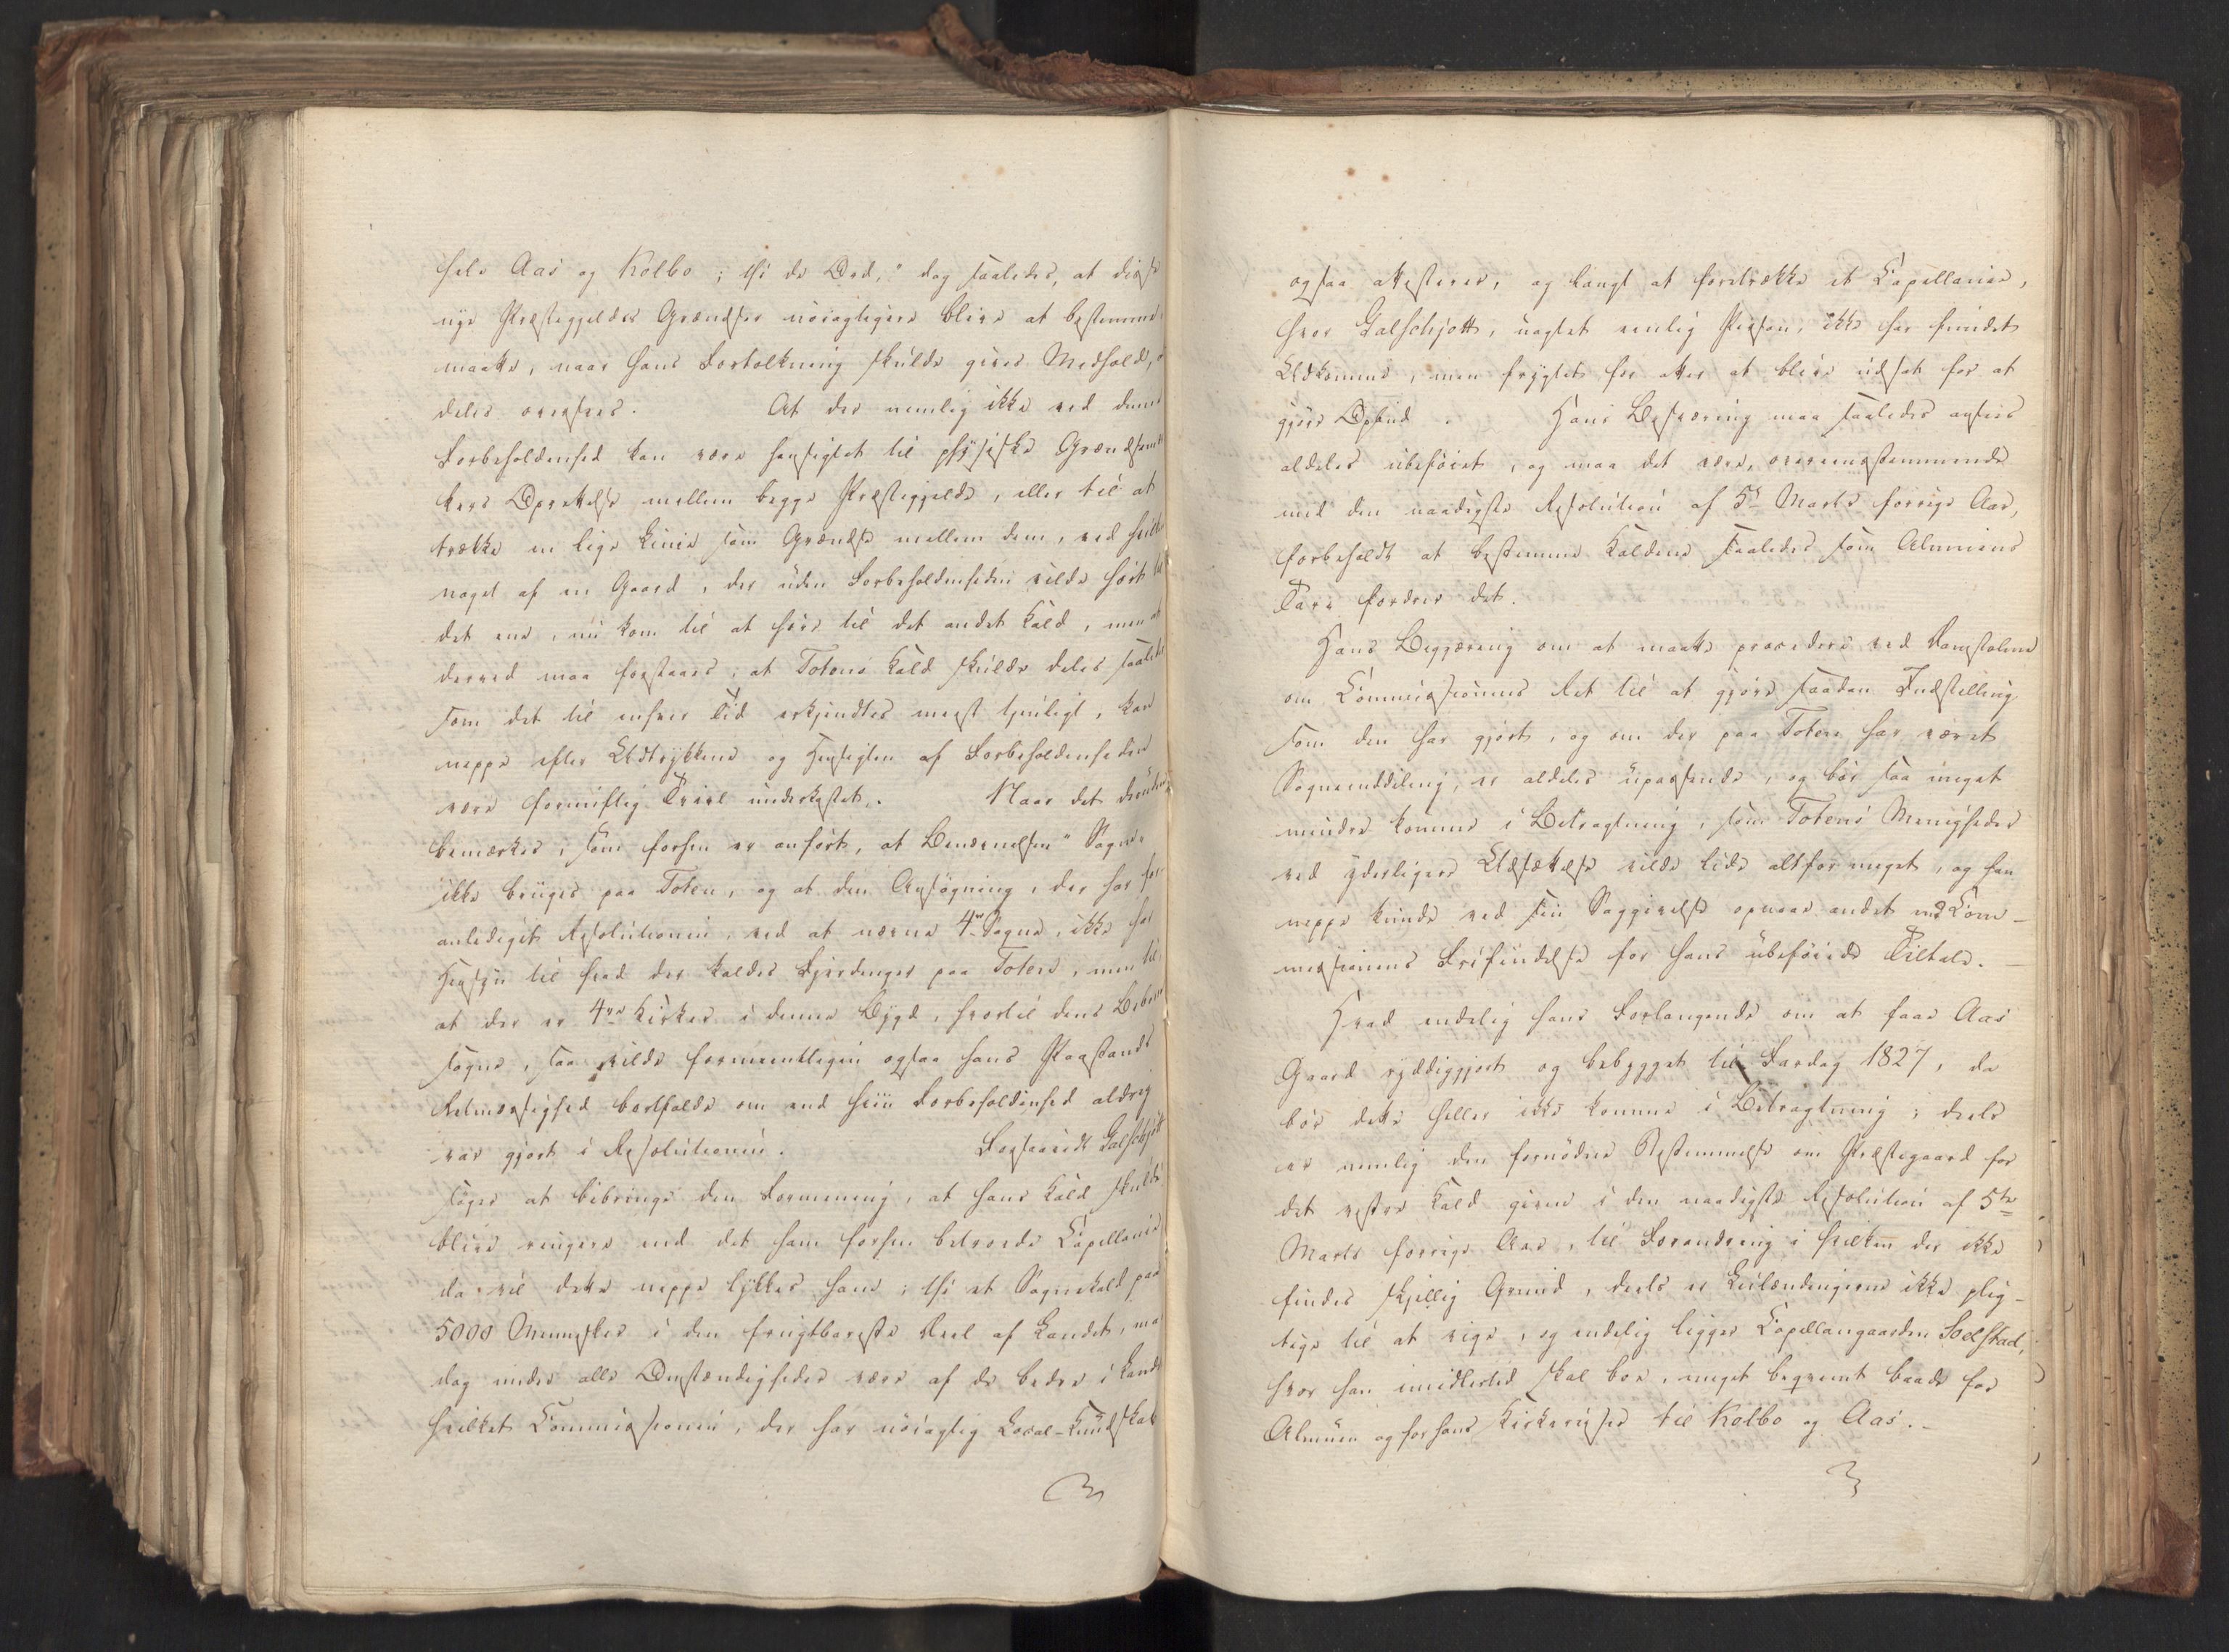 hele Aas og Kolbo; thi de Ord, "dog saaledes, at disse
nye Præstegjelders Grændser nöiagtigere blive at bestemme"
maatte, naar hans Fortolkning skulde gives Medhold,
deles oversees. At der nemlig ikke ved denne
Forbeholdenhed kan være hensigtet til physiske Grændsemær
kers Oprettelse mellem begge Præstegjelde, eller til at
trække en lige Linie som Grændse mellem dem, ved hvilke
noget af en Gaard, der uden Forbeholdenheden vilde hört til
det ene, nu kom til at höre til det andet Kald, men at
derved maa forstaaes, at Totens Kald skulde deles saaledes
som det til enhver Tid erkjendtes meest tjenligt, kan
neppe efter Udtrykkene og Hensigten af Forbeholdenheden
være fornuftig Tvivl underkastet. Naar det desuden
bemærkes, som forhen er anfört, at Benævnelsen "Sogne"
ikke bruges paa Toten, og at den Ansögning, der har for
anlediget Resolutionen, ved at nævne 4re Sogne, ikke har
Hensyn til hvad der kaldes Fjerdinger paa Toten, men til,
at der er 4re Kirker i denne Bygd, hvortil dens Beboere
sögne, saa vilde formeentligen ogsaa hans Paastands
Retmæssighed bortfalde om end hiin Forbeholdenhed aldrig
var gjort i Resolutionen. Forsaavidt Galschjött
söger at bibringe den Formening, at hans Kald skulde
blive ringere end det ham forhen betroede Capellanie
da vil dette neppe lykkes ham; thi et Sognekald paa
5000 Mennesker i den frugtbareste Deel af Landet, maa
dog under alle Omstændigheder være af de bedre i Landet
hvilket Commissionen, der har nöiagtig Local-Kundskab
ogsaa attesterer, og langt at foretrække et Capellanie,
hvor Galschjött, uagtet enlig Person, ikke har fundet
Udkomme, men frygtet for atter at blive udsat for at
gjöre Opbud. Hans Besværing maa saaledes ansees
aldeles ubeföiet, og maa det være, overeensstemmende
med den naadigste Resolution af 5te Marts forrige Aar,
forbeholdt at bestemme Kaldene saaledes som Almeens
Tarv fordrer det.
Hans Begjæring om at maatte procedere ved Domstolene
om Commissionens Ret til at gjöre saadan Indstilling
som den har gjort, og om der paa Toten har været
Sogneinddeling, er aldeles upassende, og bör saa meget
mindre komme i Betragtning, som Totens Menigheder
ved yderligere Udsættelse vilde lide altfor meget, og han
neppe kunde ved sin Saggivelse opnaae andet end Com-
missionens Frifindelse for hans ubeföiede Tiltale.-
Hvad endelig hans Forlangende om at faae Aas
Gaard ryddiggjort og bebygget til Fardag 1827, da
bör dette heller ikke komme i Betragtning; deels
er nemlig den fornödne Bestemmelse om Præstegaard for
det vestre Kald given i den naadigste Resolution af 5te
Marts forrige Aar, til Forandring i hvilken der ikke
findes skjellig Grund, deels er Leilændingerne ikke plig-
tige til at vige, og endelig ligger Capellangaarden Soelstad,
hvor han imidlertid skal boe, meget beqvemt baade for
Almuen og for hans Kirkereiser til Kolbo og Aas.-